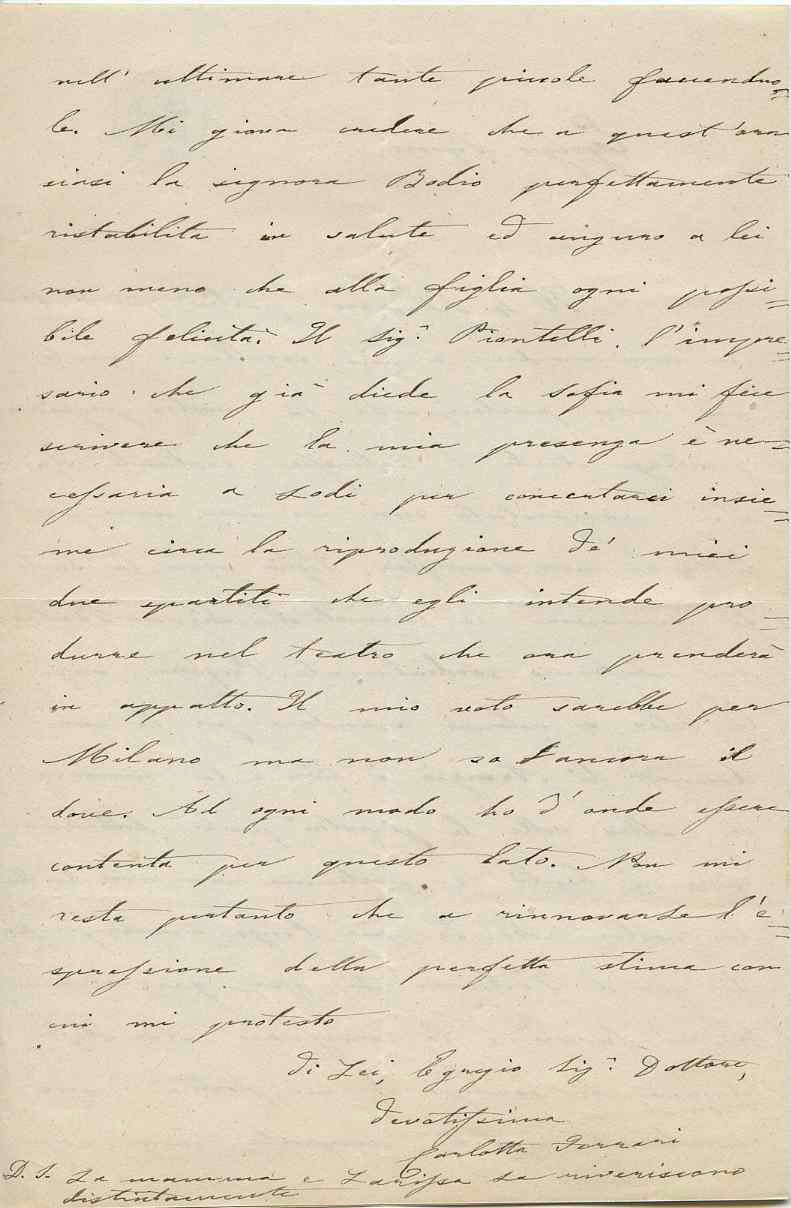 nell' ultimare tante piccole faccenduo=
le. Mi giova credere che a quest'ora
siasi la signora Bodio perfettamente
ristabilita in salute ed auguro a lei
non meno che alla figlia ogni possi=
bile felicità. Il Sigr Piontelli, l'impre=
sario che già diede la Sofia mi fece
scrivere che la mia presenza è ne=
cessaria a Lodi per concertarci insie=
me circa la riproduzione de' miei
due spartiti che egli intende pro=
durre nel teatro che ora prenderà
in appalto. Il mio voto sarebbe per
Milano ma non so ancora il
dove. Ad ogni modo ho d'onde essere
contenta per questo lato. Non mi
resta pertanto che a rinnovarLe l'e=
spressione della perfetta stima con
cui mi protesto
di Lei, Egregio Sigr Dottore,
devotissima
Carlotta Ferrari
P.S. La mamma e Larissa La riveriscono
distintamente